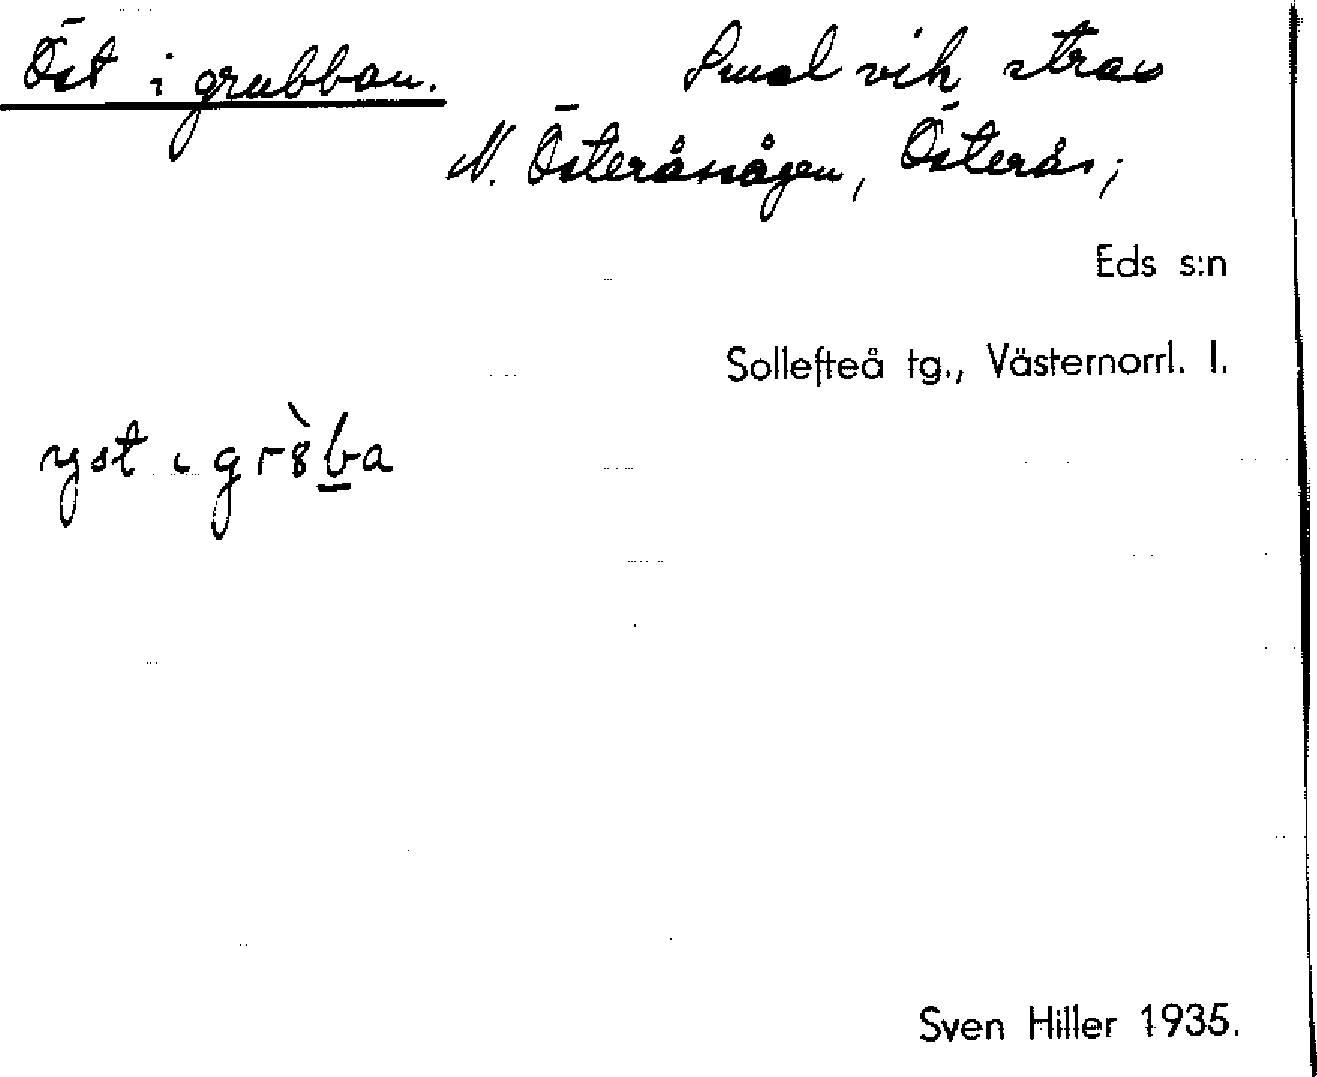 Öst i grubban. Smal vik strax
N. Österåssågen, Österås;
Eds s:n
Sollefteå tg., Västernorrl. l.
yst ɩ gr8̀ba
Sven Hiller 1935.